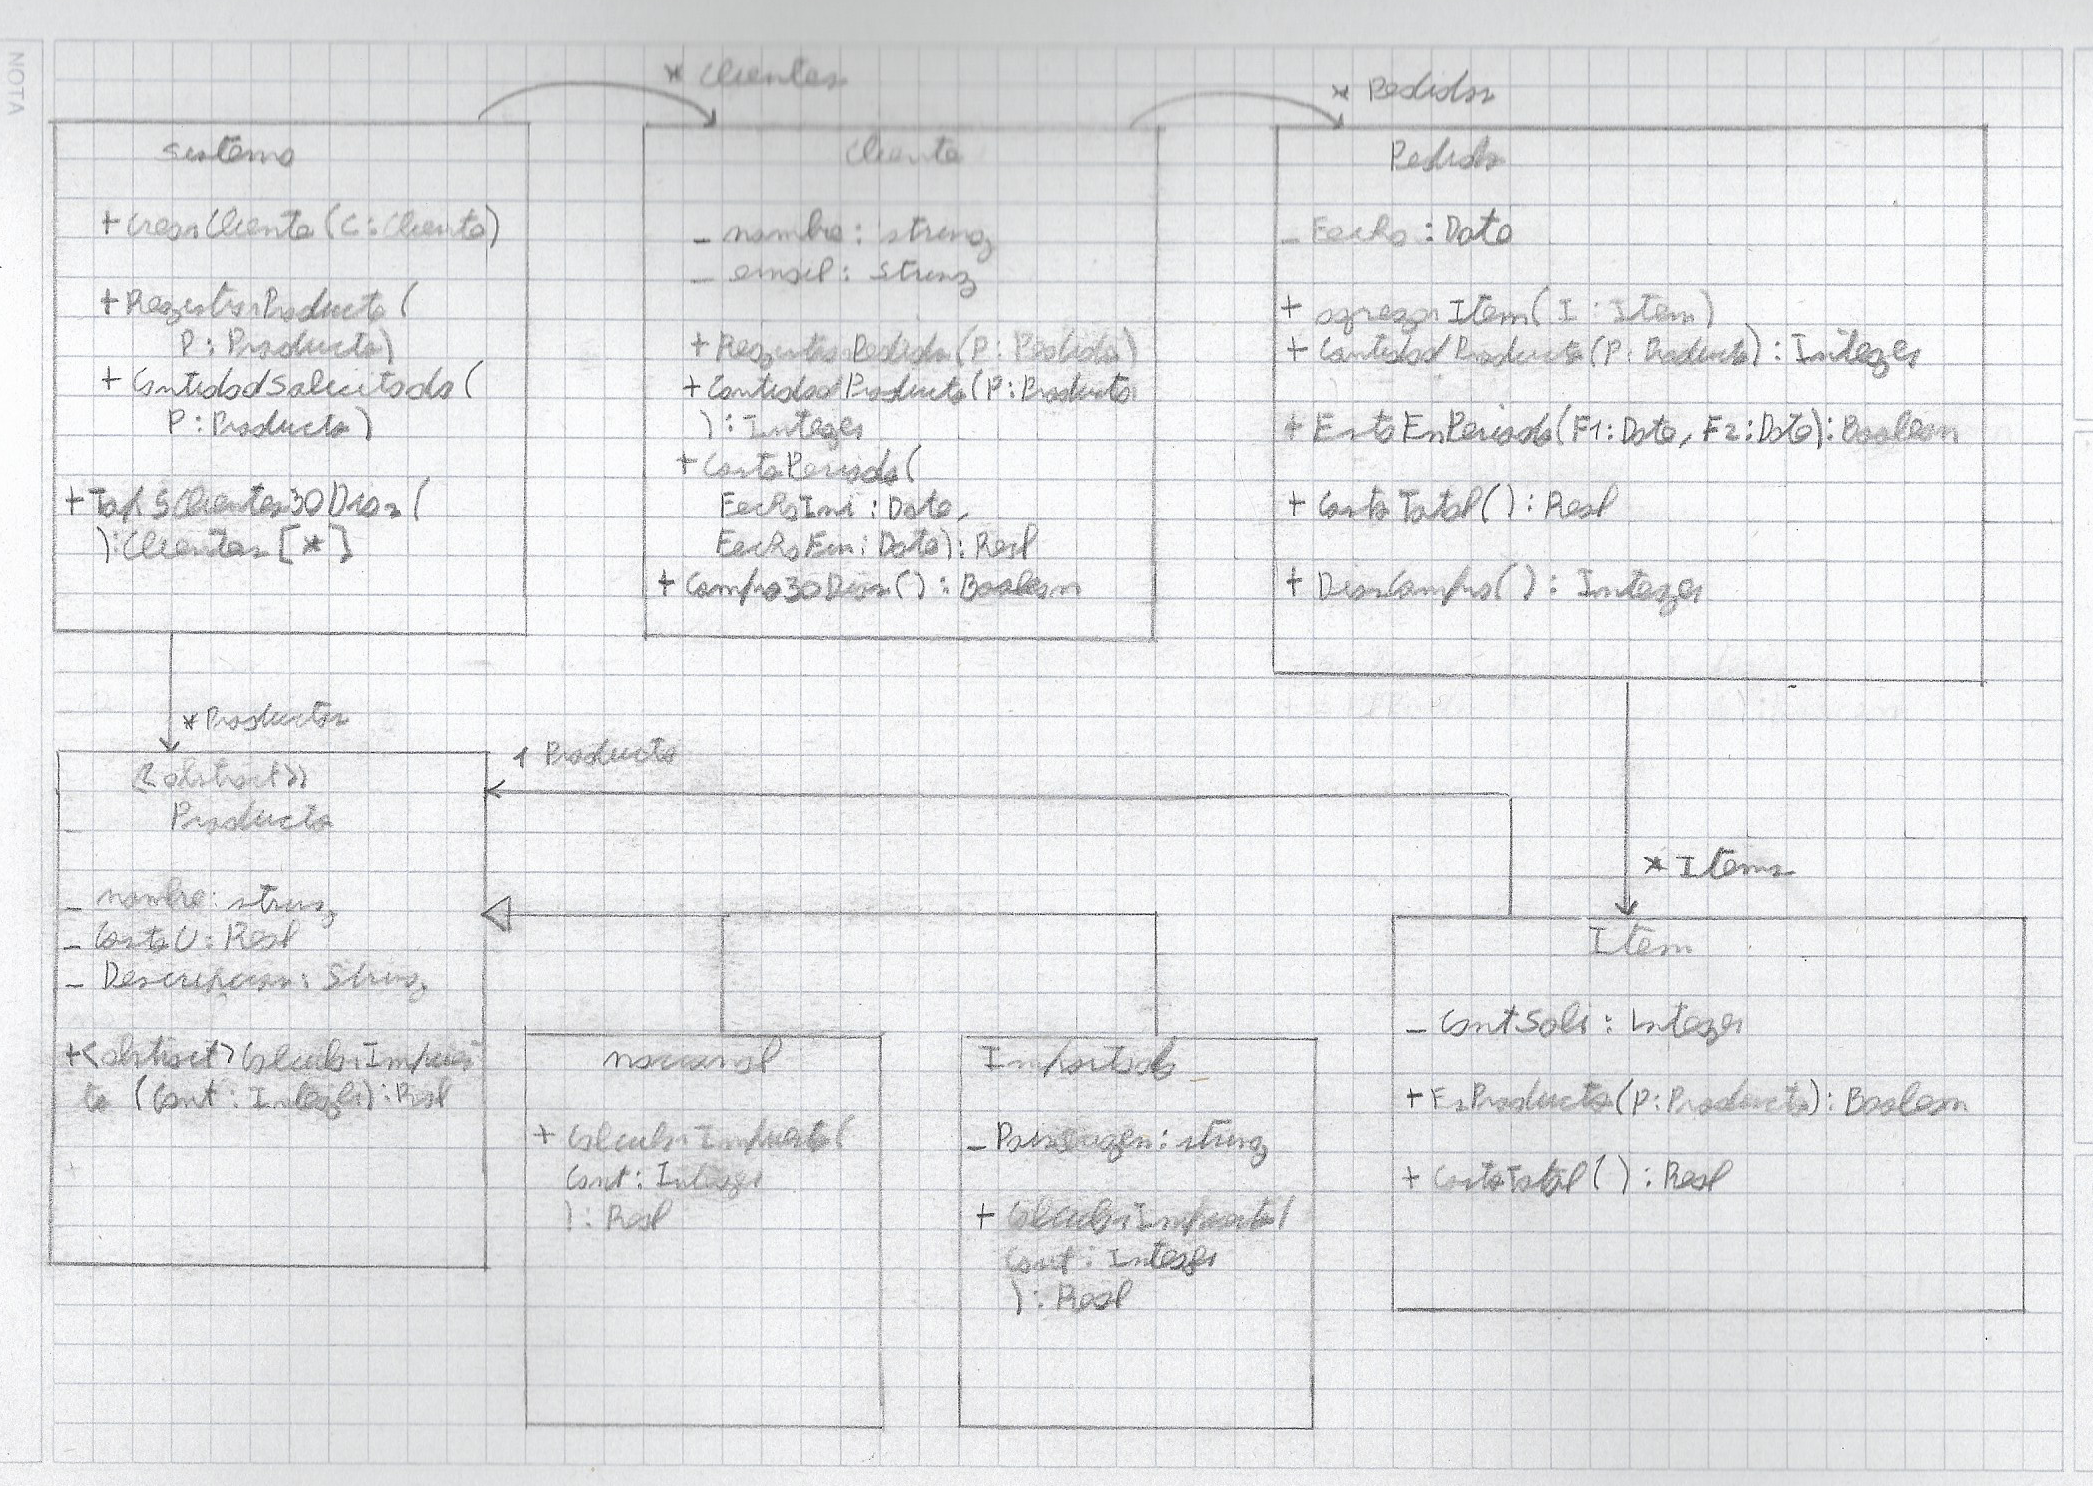 NOTA
* Clientes
* Pedidos
Sistema
+ CrearCliente(C:Cliente)
+ RegistrarProducto(
P: Producto)
+ CantidadSolicitada(
P:Producto)
+ Top5Clientes30Dias(
):Clientes[*]
Cliente
- nombre: string
- email: string
+ RegistrarPedido(P: Pedido)
+ CantidadProducto(P:Producto
): Integer
+ CostoPeriodo(
FechaIni: Date,
FechaFin: Date): Real
+ Compro30Dias(): Boolean
Pedido
- Fecha: Date
+ agregarItem(I: Item)
+ CantidadProducto(P: Producto): Integer
+ EstaEnPeriodo(F1: Date, F2: Date): Boolean
+ CostoTotal(): Real
+ DiasCompra(): Integer
* Productos
1 Producto
* Items
<<abstract>>
Producto
- nombre: string
- CostoU: Real
- Descripcion: String
+<abstract>CalcularImpues
to (Cant: Integer): Real
nacional
+ CalcularImpuesto(
Cant: Integer
): Real
Importado
- PaisOrigen: string
+ CalcularImpuesto(
Cant: Integer
): Real
Item
- CantSoli: Integer
+ EsProducto(P:Producto): Boolean
+ CostoTotal(): Real